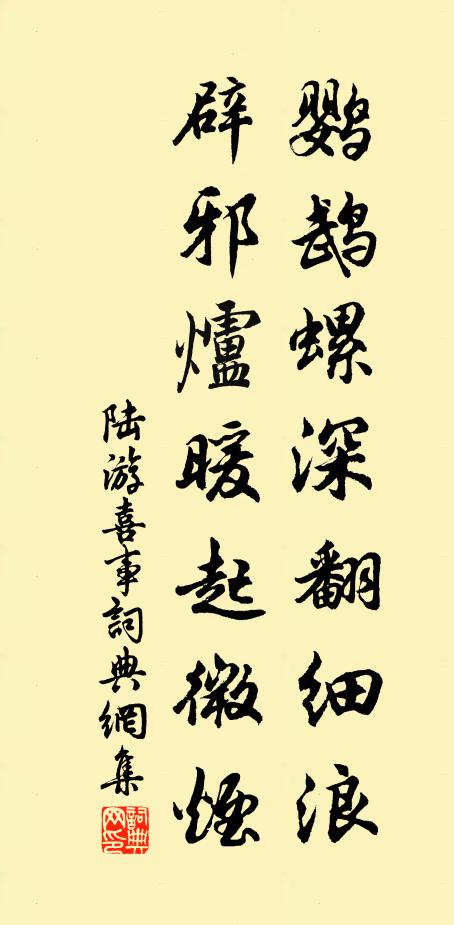 鹦鹉螺深翻细浪
辟邪爐暖起微煙
陆游喜事詞典網集
詞典網印